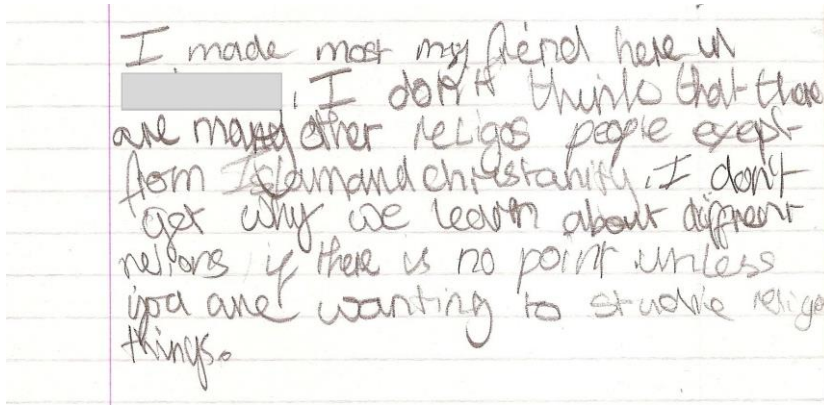 I made most my fiend here in
. I don't think that there
are many other religos people exept
from Islamand christanity. I don't
get why we learn about diffrent
relions if there is no point unless
you are wanting to studie religo
things.